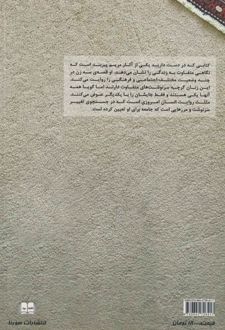 کتابی که در دست دارید یکی از آثار مریم پیرنند است که
نگاهی متفاوت به زندگی را نشان می‌دهند. او قصه‌ی سه زن در
چند وضعیت مختلف اجتماعی و فرهنگی را روایت می‌کند.
این زنان گرچه سرنوشت‌های متفاوت دارند اما گویا همه
آنها یکی هستند و فقط جایشان را با یکدیگر عوض می‌کنند.
مثلث روایت انسان امروزی است که در جستجوی تغییر
سرنوشت و مرزهایی است که جامعه برای او تعیین کرده است.
انتشارات مورینا
تومان